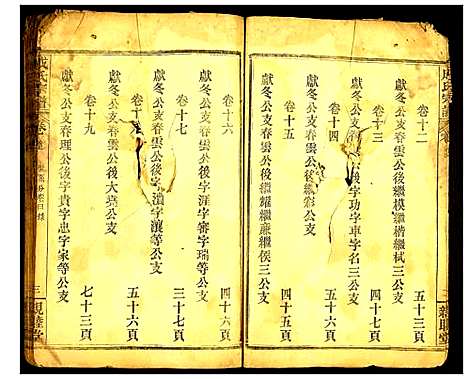 卷十二
獻冬公支春雲公後繼模繼楷繼栻三公支
五十三頁
卷十三
獻冬公支春雲公後字功字車字名三公支
卷十四
獻冬公支春雲公後繼耀繼廉繼侯三公支
五十二頁
卷十五
四十六頁
卷十六
獻冬公支春雲公後字涯字審字瑞等公支
四十頁
卷十七
獻冬公支春雲公後字濆字瀼等公支
三十七頁
獻冬公支春雲公後大葵公支
五十六頁
卷十九
獻冬公支春理公後字貴字忠字家等公支
七十三頁
成氏宗譜
卷首
三
親睦堂